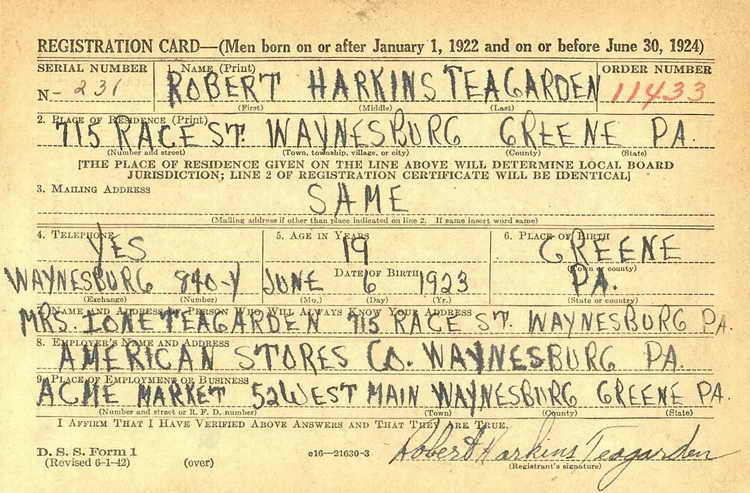 REGISTRATION CARD—(Men born on or after January 1, 1922 and on or before June 30, 1924)
SERIAL NUMBER 1. NAME (Print) ORDER NUMBER
N- 231 ROBERT HARKINS TEAGARDEN 11433
(First) (Middle) (Last)
2. PLACE OF RESIDENCE (Print)
715 RACE ST. WAYNESBURG GREENE PA.
(Number and street) (Town, township, village, or city) (County) (State)
[THE PLACE OF RESIDENCE GIVEN ON THE LINE ABOVE WILL DETERMINE LOCAL BOARD
JURISDICTION; LINE 2 OF REGISTRATION CERTIFICATE WILL BE IDENTICAL]
3. MAILING ADDRESS
SAME
(Mailing address if other than place indicated on line 2. If same insert word same)
4. TELEPHONE 5. AGE IN YEARS 6. PLACE OF BIRTH
YES 19 GREENE
DATE OF BIRTH (Town or county)
WAYNESBURG 840-Y JUNE 6 1923 PA.
(Exchange) (Number) (Mo.) (Day) (Yr.) (State or country)
7. NAME AND ADDRESS OF PERSON WHO WILL ALWAYS KNOW YOUR ADDRESS
MRS. IONE TEAGARDEN 715 RACE ST. WAYNESBURG PA.
8. EMPLOYER'S NAME AND ADDRESS
AMERICAN STORES CO. WAYNESBURG PA.
9. PLACE OF EMPLOYMENT OR BUSINESS
ACME MARKET 52 WEST MAIN WAYNESBURG GREENE PA.
(Number and street or R. F. D. number) (Town) (County) (State)
I AFFIRM THAT I HAVE VERIFIED ABOVE ANSWERS AND THAT THEY ARE TRUE.
D. S. S. Form 1
(Revised 6-1-42) (over) c16—21630-3 Robert Harkins Teagarden
(Registrant's signature)